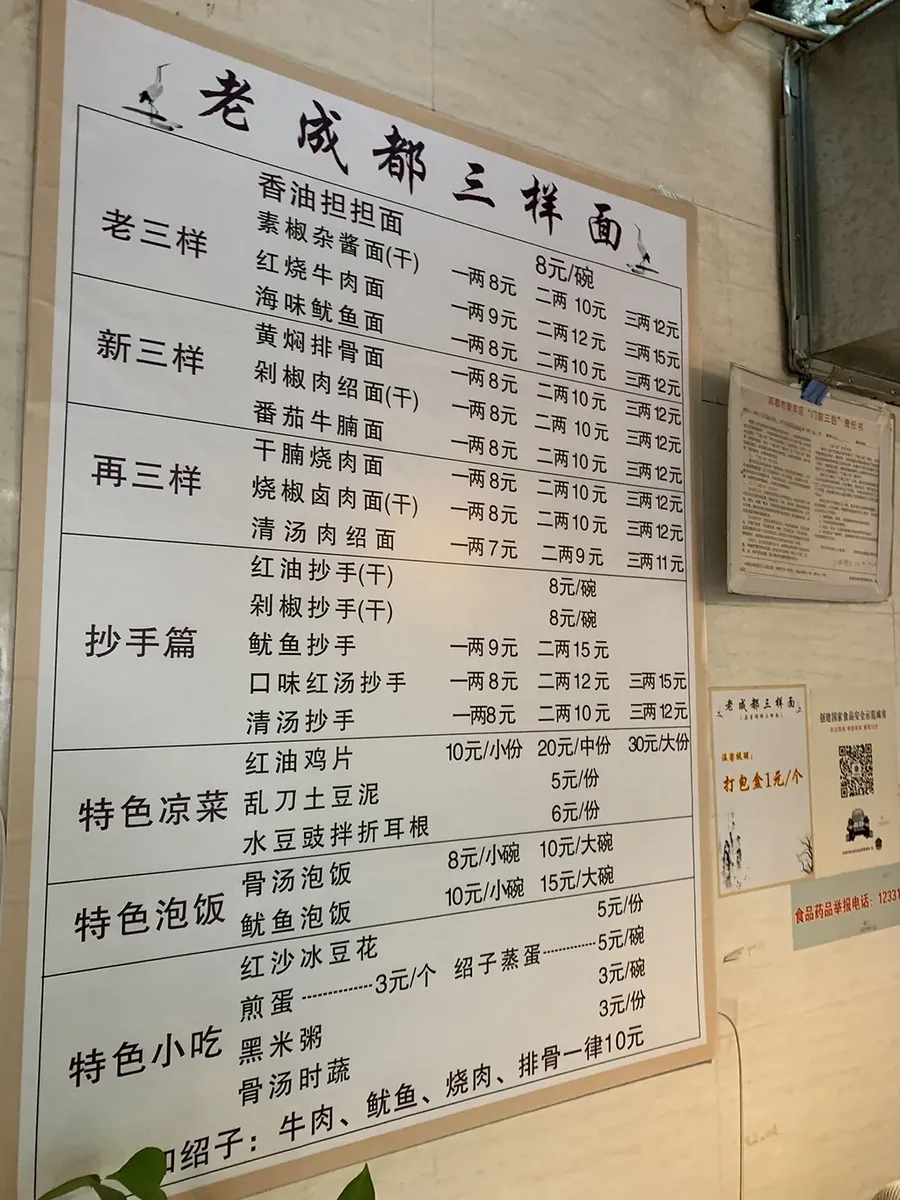 老成都三样面
老三样
香油担担面 8元/碗
素椒杂酱面(干) 一两8元 二两10元 三两12元
红烧牛肉面 一两9元 二两12元 三两15元
新三样
海味鱿鱼面 一两8元 二两10元 三两12元
黄焖排骨面 一两8元 二两10元 三两12元
剁椒肉绍面(干) 一两8元 二两10元 三两12元
再三样
番茄牛腩面 一两8元 二两10元 三两12元
干腩烧肉面 一两8元 二两10元 三两12元
烧椒卤肉面(干) 一两8元 二两10元 三两12元
清汤肉绍面 一两7元 二两9元 三两11元
抄手篇
红油抄手(干) 8元/碗
剁椒抄手(干) 8元/碗
鱿鱼抄手 一两9元 二两15元
口味红汤抄手 一两8元 二两12元 三两15元
清汤抄手 一两8元 二两10元 三两12元
特色凉菜
红油鸡片 10元/小份 20元/中份 30元/大份
乱刀土豆泥 5元/份
水豆豉拌折耳根 6元/份
特色泡饭
骨汤泡饭 8元/小碗 10元/大碗
鱿鱼泡饭 10元/小碗 15元/大碗
特色小吃
红沙冰豆花 5元/份
煎蛋------------3元/个 绍子蒸蛋-----------5元/碗
黑米粥 3元/碗
骨汤时蔬 3元/份
加绍子：牛肉、鱿鱼、烧肉、排骨一律10元
"门前三包"责任书
老成都三样面
温馨提醒：
打包盒1元/个
创建国家食品安全示范城市
食品药品举报电话：12331